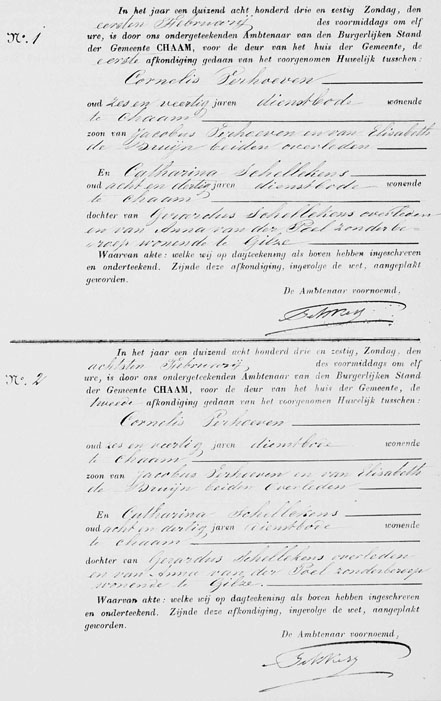 In het jaar een duizend acht honderd drie en zestig Zondag, den
eersten Februarij, des voormiddags om elf
No. 1
ure, is door ons ondergeteekenden Ambtenaar van den Burgerlijken Stand
der Gemeente CHAAM, voor de deur van het huis der Gemeente, de
eerste afkondiging gedaan van het voorgenomen Huwelijk tusschen:
Cornelis Verhoeven
oud zes en veertig jaren dienstbode wonende
te Chaam
zoon van Jacobus Verhoeven en van Elisabeth
de Bruijn beiden overleden
En Catharina Schellekens
oud acht en dertig jaren dienstbode wonende
te Chaam
dochter van Gerardus Schellekens overleden
en van Anna van der Poel zonder be-
roep wonende te Gilze
Waarvan akte: welke wij op dagteekening als boven hebben ingeschreven
en onderteekend. Zijnde deze afkondiging, ingevolge de wet, aangeplakt
geworden.
De Ambtenaar voornoemd,
In het jaar een duizend acht honderd drie en zestig, Zondag, den
achtsten Februarij, des voormiddags om elf
No. 2
ure, is door ons ondergeteekenden Ambtenaar van den Burgerlijken Stand
der Gemeente CHAAM, voor de deur van het huis der Gemeente, de
tweede afkondiging gedaan van het voorgenomen Huwelijk tusschen:
Cornelis Verhoeven
oud zes en veertig jaren dienstbode wonende
te Chaam
zoon van Jacobus Verhoeven en van Elisabeth
de Bruijn beiden overleden
En Catharina Schellekens
oud acht en dertig jaren dienstbode wonende
te Chaam
dochter van Gerardus Schellekens overleden
en van Anna van der Poel zonder beroep
wonende te Gilze
Waarvan akte: welke wij op dagteekening als boven hebben ingeschreven
en onderteekend. Zijnde deze afkondiging, ingevolge de wet, aangeplakt
geworden.
De Ambtenaar voornoemd,